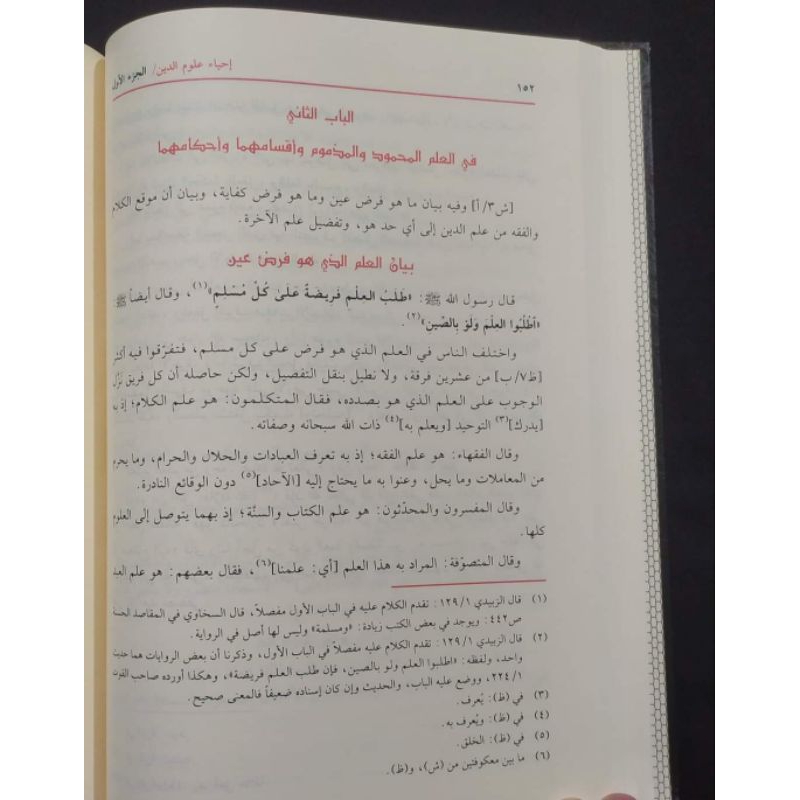 إحياء علوم الدين/ الجزء الأول
١٥٢
الباب الثاني
في العلم المحمود والمذموم وأقسامهما وأحكامهما
[ش٣/أ] وفيه بيان ما هو فرض عين وما هو فرض كفاية، وبيان أن موقع الكلام
والفقه من علم الدين إلى أي حد هو، وتفضيل علم الآخرة.
بيان العلم الذي هو فرض عين
قال رسول الله ﷺ: «طَلَبُ العِلْمِ فَرِيضَةٌ عَلَىٰ كُلِّ مُسْلِمٍ»(١)، وقال أيضاً ﷺ:
«اطْلُبُوا العِلْمَ وَلَوْ بِالصِّين»(٢).
واختلف الناس في العلم الذي هو فرض على كل مسلم، فتفرّقوا فيه أكثر
[ظ٧/ب] من عشرين فرقة، ولا نطيل بنقل التفصيل، ولكن حاصله أن كل فريق نزّل
الوجوب على العلم الذي هو بصدده، فقال المتكلمون: هو علم الكلام؛ إذ به
[يدرك](٣) التوحيد [ويعلم به](٤) ذات الله سبحانه وصفاته.
وقال الفقهاء: هو علم الفقه؛ إذ به تعرف العبادات والحلال والحرام، وما يحرم
من المعاملات وما يحل، وعنوا به ما يحتاج إليه [الآحاد](٥) دون الوقائع النادرة.
وقال المفسرون والمحدّثون: هو علم الكتاب والسنّة؛ إذ بهما يتوصل إلى العلوم
كلها.
وقال المتصوّفة: المراد به هذا العلم [أي: علمنا](٦)، فقال بعضهم: هو علم العبد
(١) قال الزبيدي ١/ ١٢٩: تقدم الكلام عليه في الباب الأول مفصلاً، قال السخاوي في المقاصد الحسنة
ص٤٤٢: ويوجد في بعض الكتب زيادة: «ومسلمة» وليس لها أصل في الرواية.
(٢) قال الزبيدي ١/ ١٢٩: تقدم الكلام عليه مفصلاً في الباب الأول، وذكرنا أن بعض الروايات هما حديث
واحد، ولفظه: «اطلبوا العلم ولو بالصين، فإن طلب العلم فريضة»، وهكذا أورده صاحب القوت
١/ ٢٢٤، ووضع عليه الباب، والحديث وإن كان إسناده ضعيفاً فالمعنى صحيح.
(٣) في (ظ): يُعرف.
(٤) في (ظ): ويُعرف به.
(٥) في (ظ): الخلق.
(٦) ما بين معكوفتين من (ش)، و(ظ).